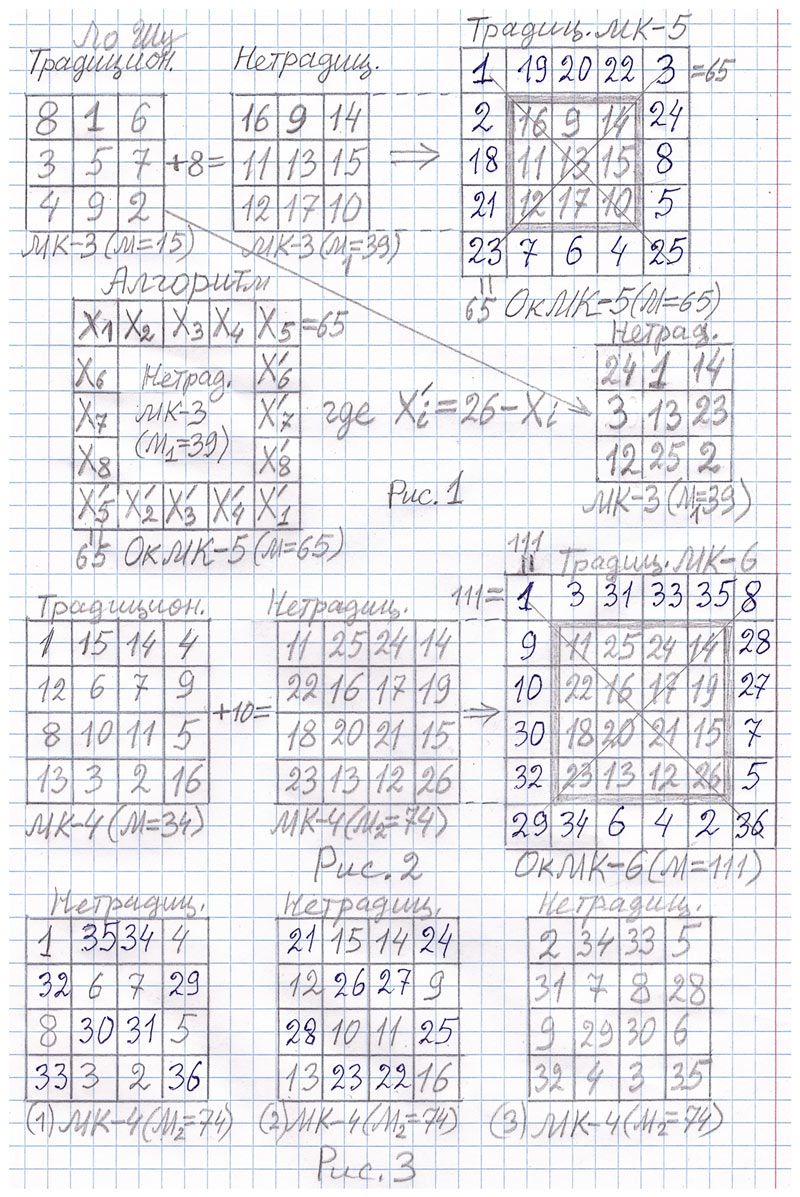 Ло Шу
Традицион.
8 1 6
3 5 7
4 9 2
МК-3 (М=15)
+8=
Нетрадиц.
16 9 14
11 13 15
12 17 10
МК-3 (М1=39)
Традиц. МК-5
1 19 20 22 3 =65
2 16 9 14 24
18 11 13 15 8
21 12 17 10 5
23 7 6 4 25
65 ОкМК-5 (М=65)
Алгоритм
X1 X2 X3 X4 X5 =65
X6 Нетрад. X'6
X7 МК-3 X'7
X8 (М1=39) X'8
X'5 X'2 X'3 X'4 X'1
65 ОкМК-5 (М=65)
где X'i = 26 - Xi
Нетрад.
24 1 14
3 13 23
12 25 2
МК-3 (М1=39)
Рис. 1
Традицион.
1 15 14 4
12 6 7 9
8 10 11 5
13 3 2 16
МК-4 (М=34)
+10=
Нетрадиц.
11 25 24 14
22 16 17 19
18 20 21 15
23 13 12 26
МК-4 (М2=74)
111 Традиц. МК-6
111= 1 3 31 33 35 8
9 11 25 24 14 28
10 22 16 17 19 27
30 18 20 21 15 7
32 23 13 12 26 5
29 34 6 4 2 36
ОкМК-6 (М=111)
Рис. 2
Нетрадиц.
1 35 34 4
32 6 7 29
8 30 31 5
33 3 2 36
(1) МК-4 (М2=74)
Нетрадиц.
21 15 14 24
12 26 27 9
28 10 11 25
13 23 22 16
(2) МК-4 (М2=74)
Нетрадиц.
2 34 33 5
31 7 8 28
9 29 30 6
32 4 3 35
(3) МК-4 (М2=74)
Рис. 3